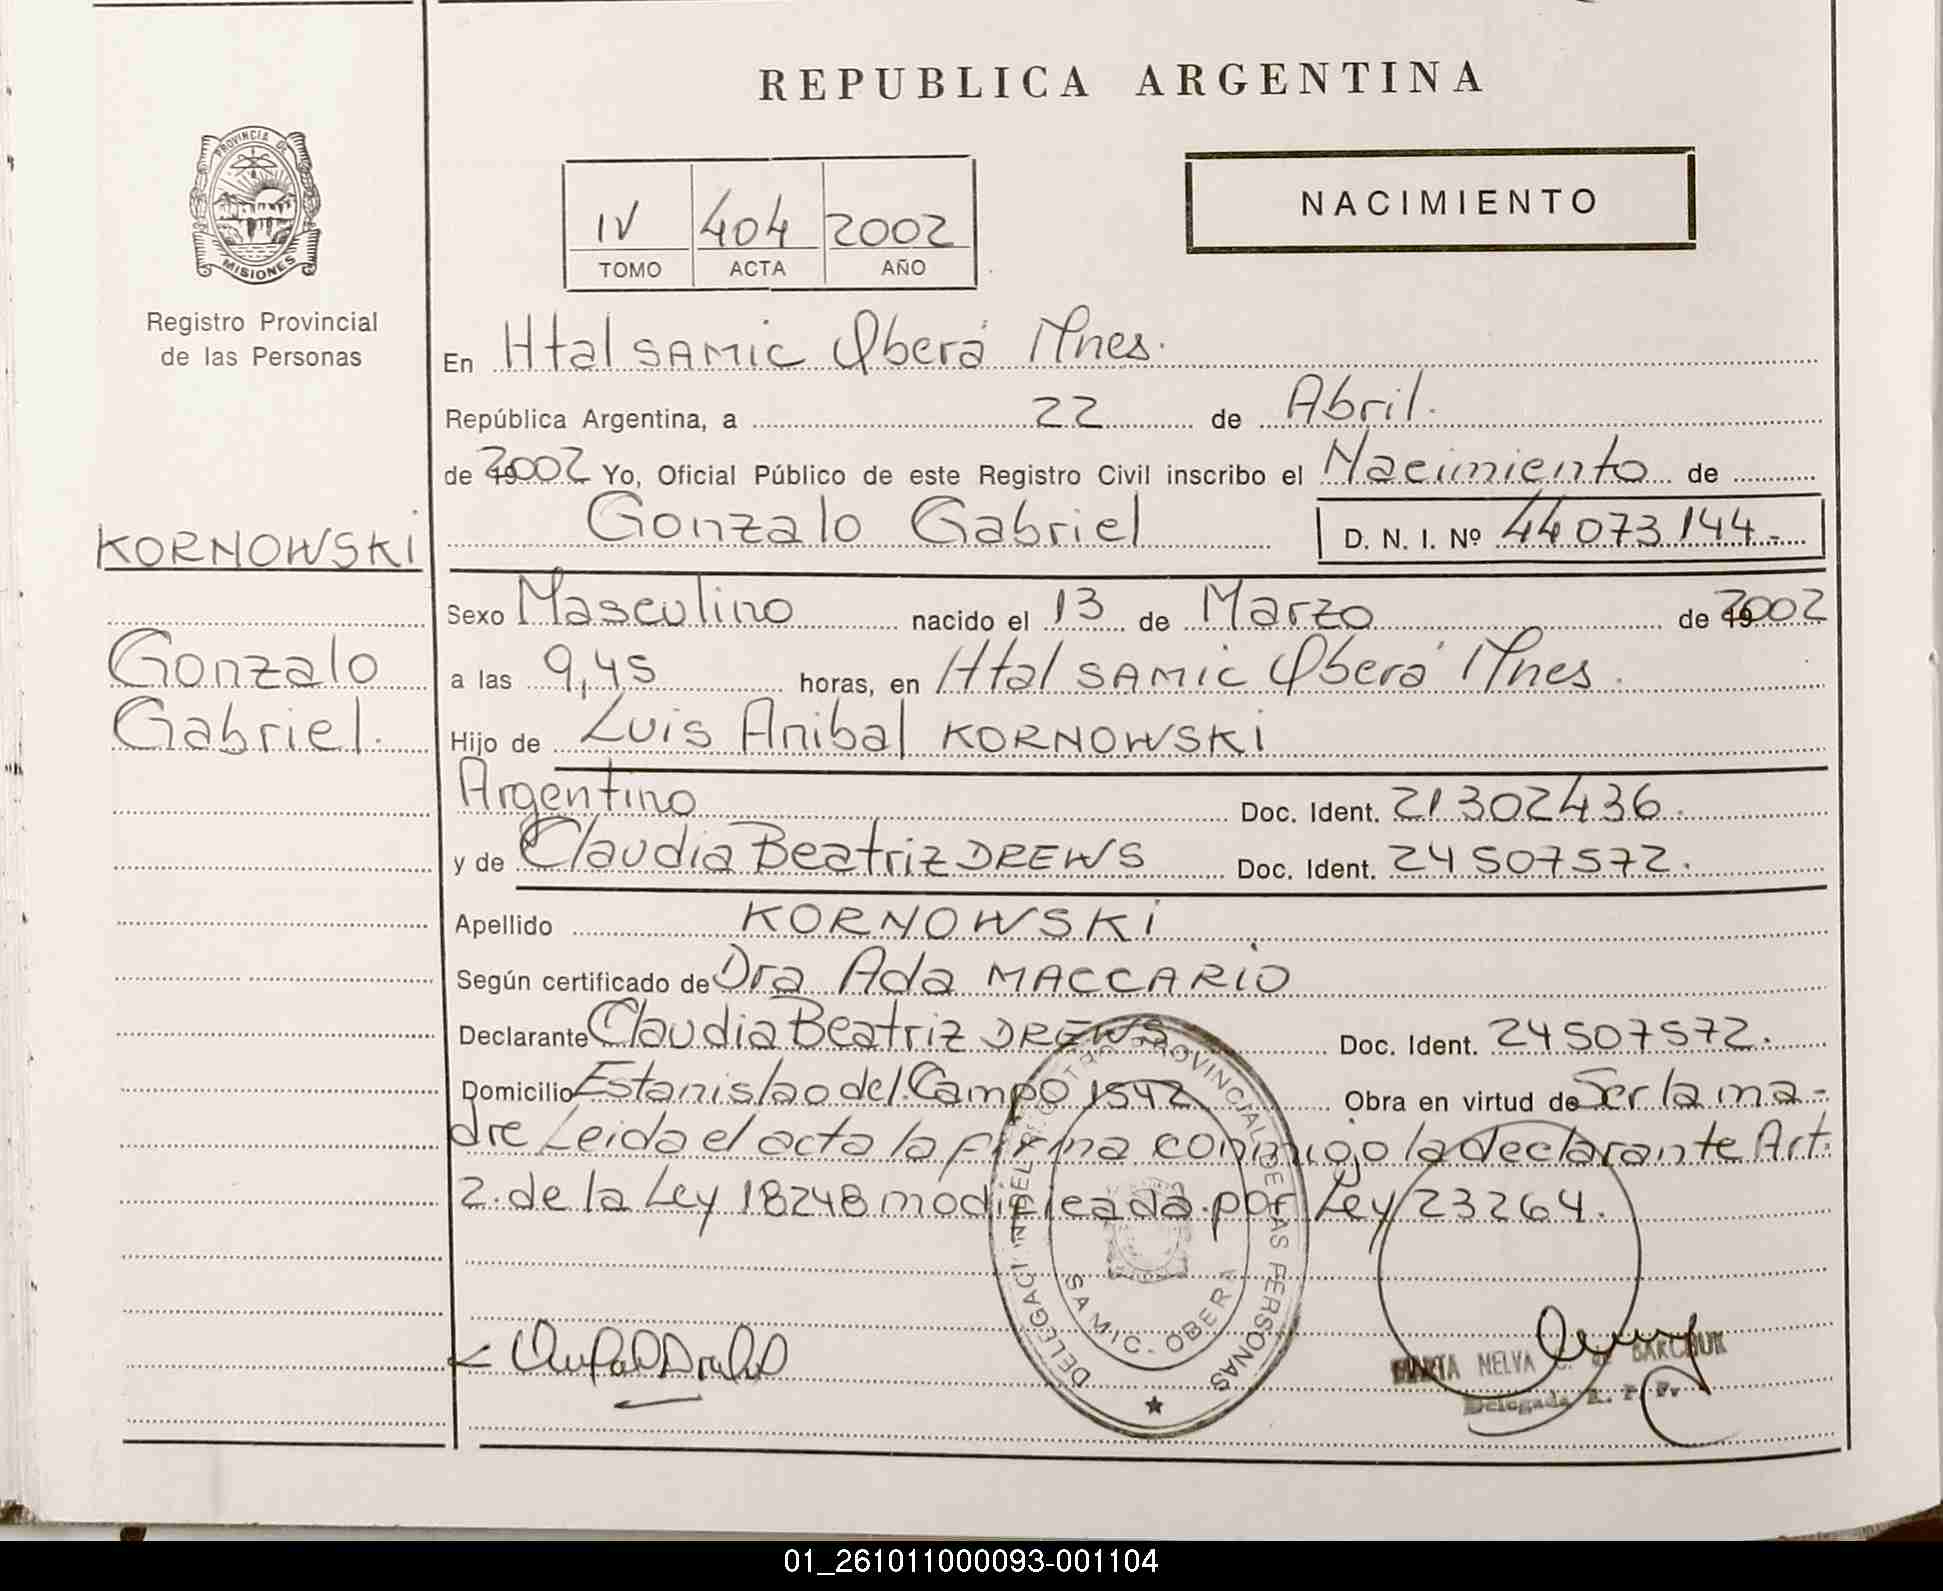 REPUBLICA ARGENTINA
PROVINCIA DE
MISIONES
Registro Provincial
de las Personas
IV 404 2002
TOMO ACTA AÑO
NACIMIENTO
En Htal SAMIC Oberá Mnes.
República Argentina, a 22 de Abril.
de 2002 Yo, Oficial Público de este Registro Civil inscribo el Nacimiento de
Gonzalo Gabriel D. N. I. Nº 44 073 144.-
KORNOWSKI
Gonzalo
Gabriel.
Sexo Masculino nacido el 13 de Marzo de 2002
a las 9,45 horas, en Htal SAMIC Oberá Mnes.
Hijo de Luis Anibal KORNOWSKI
Argentino Doc. Ident. 21302436.
y de Claudia Beatriz DREWS Doc. Ident. 24507572.
Apellido KORNOWSKI
Según certificado de Dra Ada MACCARIO
Declarante Claudia Beatriz DREWS Doc. Ident. 24507572.
Domicilio Estanislao del Campo 1542 Obra en virtud de Ser la ma-
dre Leida el acta la firma conmigo la declarante Art.
2. de la Ley 18248 modificada por Ley 23264.
REGISTRO PROVINCIAL DE LAS PERSONAS
SAMIC - OBERA
MARTA NELVA BARCHUK
Delegada R. P. P.
01_261011000093-001104